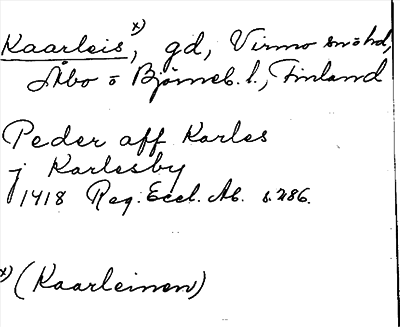 Kaarleis x), gd, Virmo sn o hd,
Åbo o Björneb. l., Finland
Peder aff Karles
j Karlesby
1418 Reg. Eccl. Ab. s. 286.
x) (Kaarleinen)